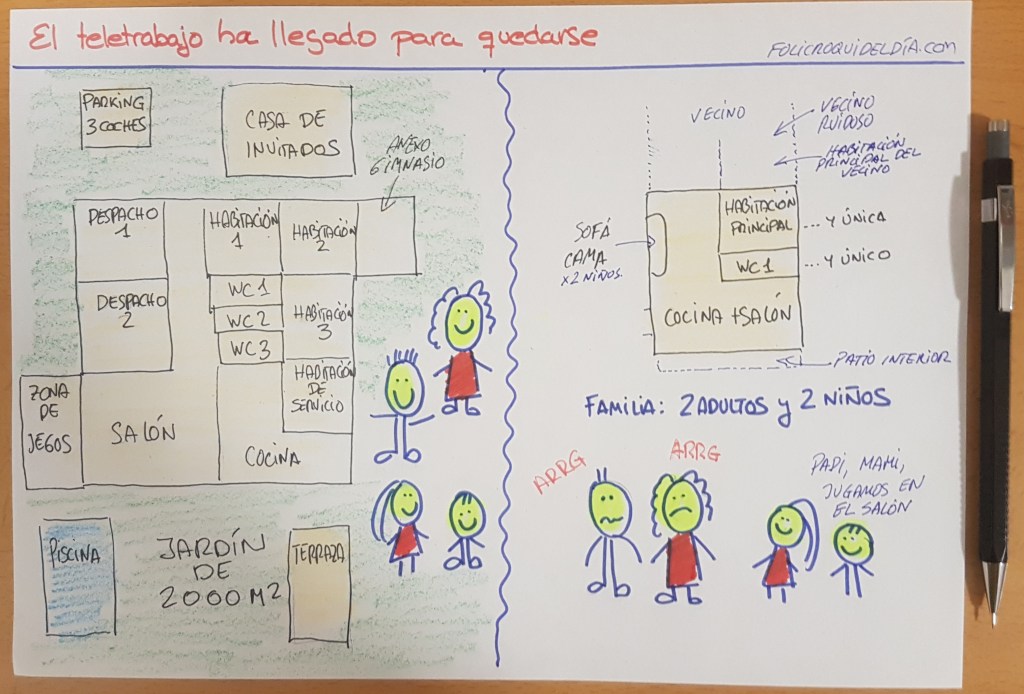 El teletrabajo ha llegado para quedarse
FOLICROQUIDELDÍA.com
PARKING
3 COCHES
CASA DE
INVITADOS
ANEXO
GIMNASIO
DESPACHO
1
HABITACIÓN
1
HABITACIÓN
2
DESPACHO
2
WC1
WC2
WC3
HABITACIÓN
3
HABITACIÓN
DE
SERVICIO
ZONA
DE
JEGOS
SALÓN
COCINA
PISCINA
JARDÍN
DE
2000 M2
TERRAZA
VECINO
VECINO
RUIDOSO
HABITACIÓN
PRINCIPAL DEL
VECINO
HABITACIÓN
PRINCIPAL
... Y ÚNICA
SOFÁ
CAMA
X2 NIÑOS.
WC1
... Y ÚNICO
COCINA + SALÓN
PATIO INTERIOR
FAMILIA: 2 ADULTOS y 2 NIÑOS
ARRG
ARRG
PAPI, MAMI,
JUGAMOS EN
EL SALÓN